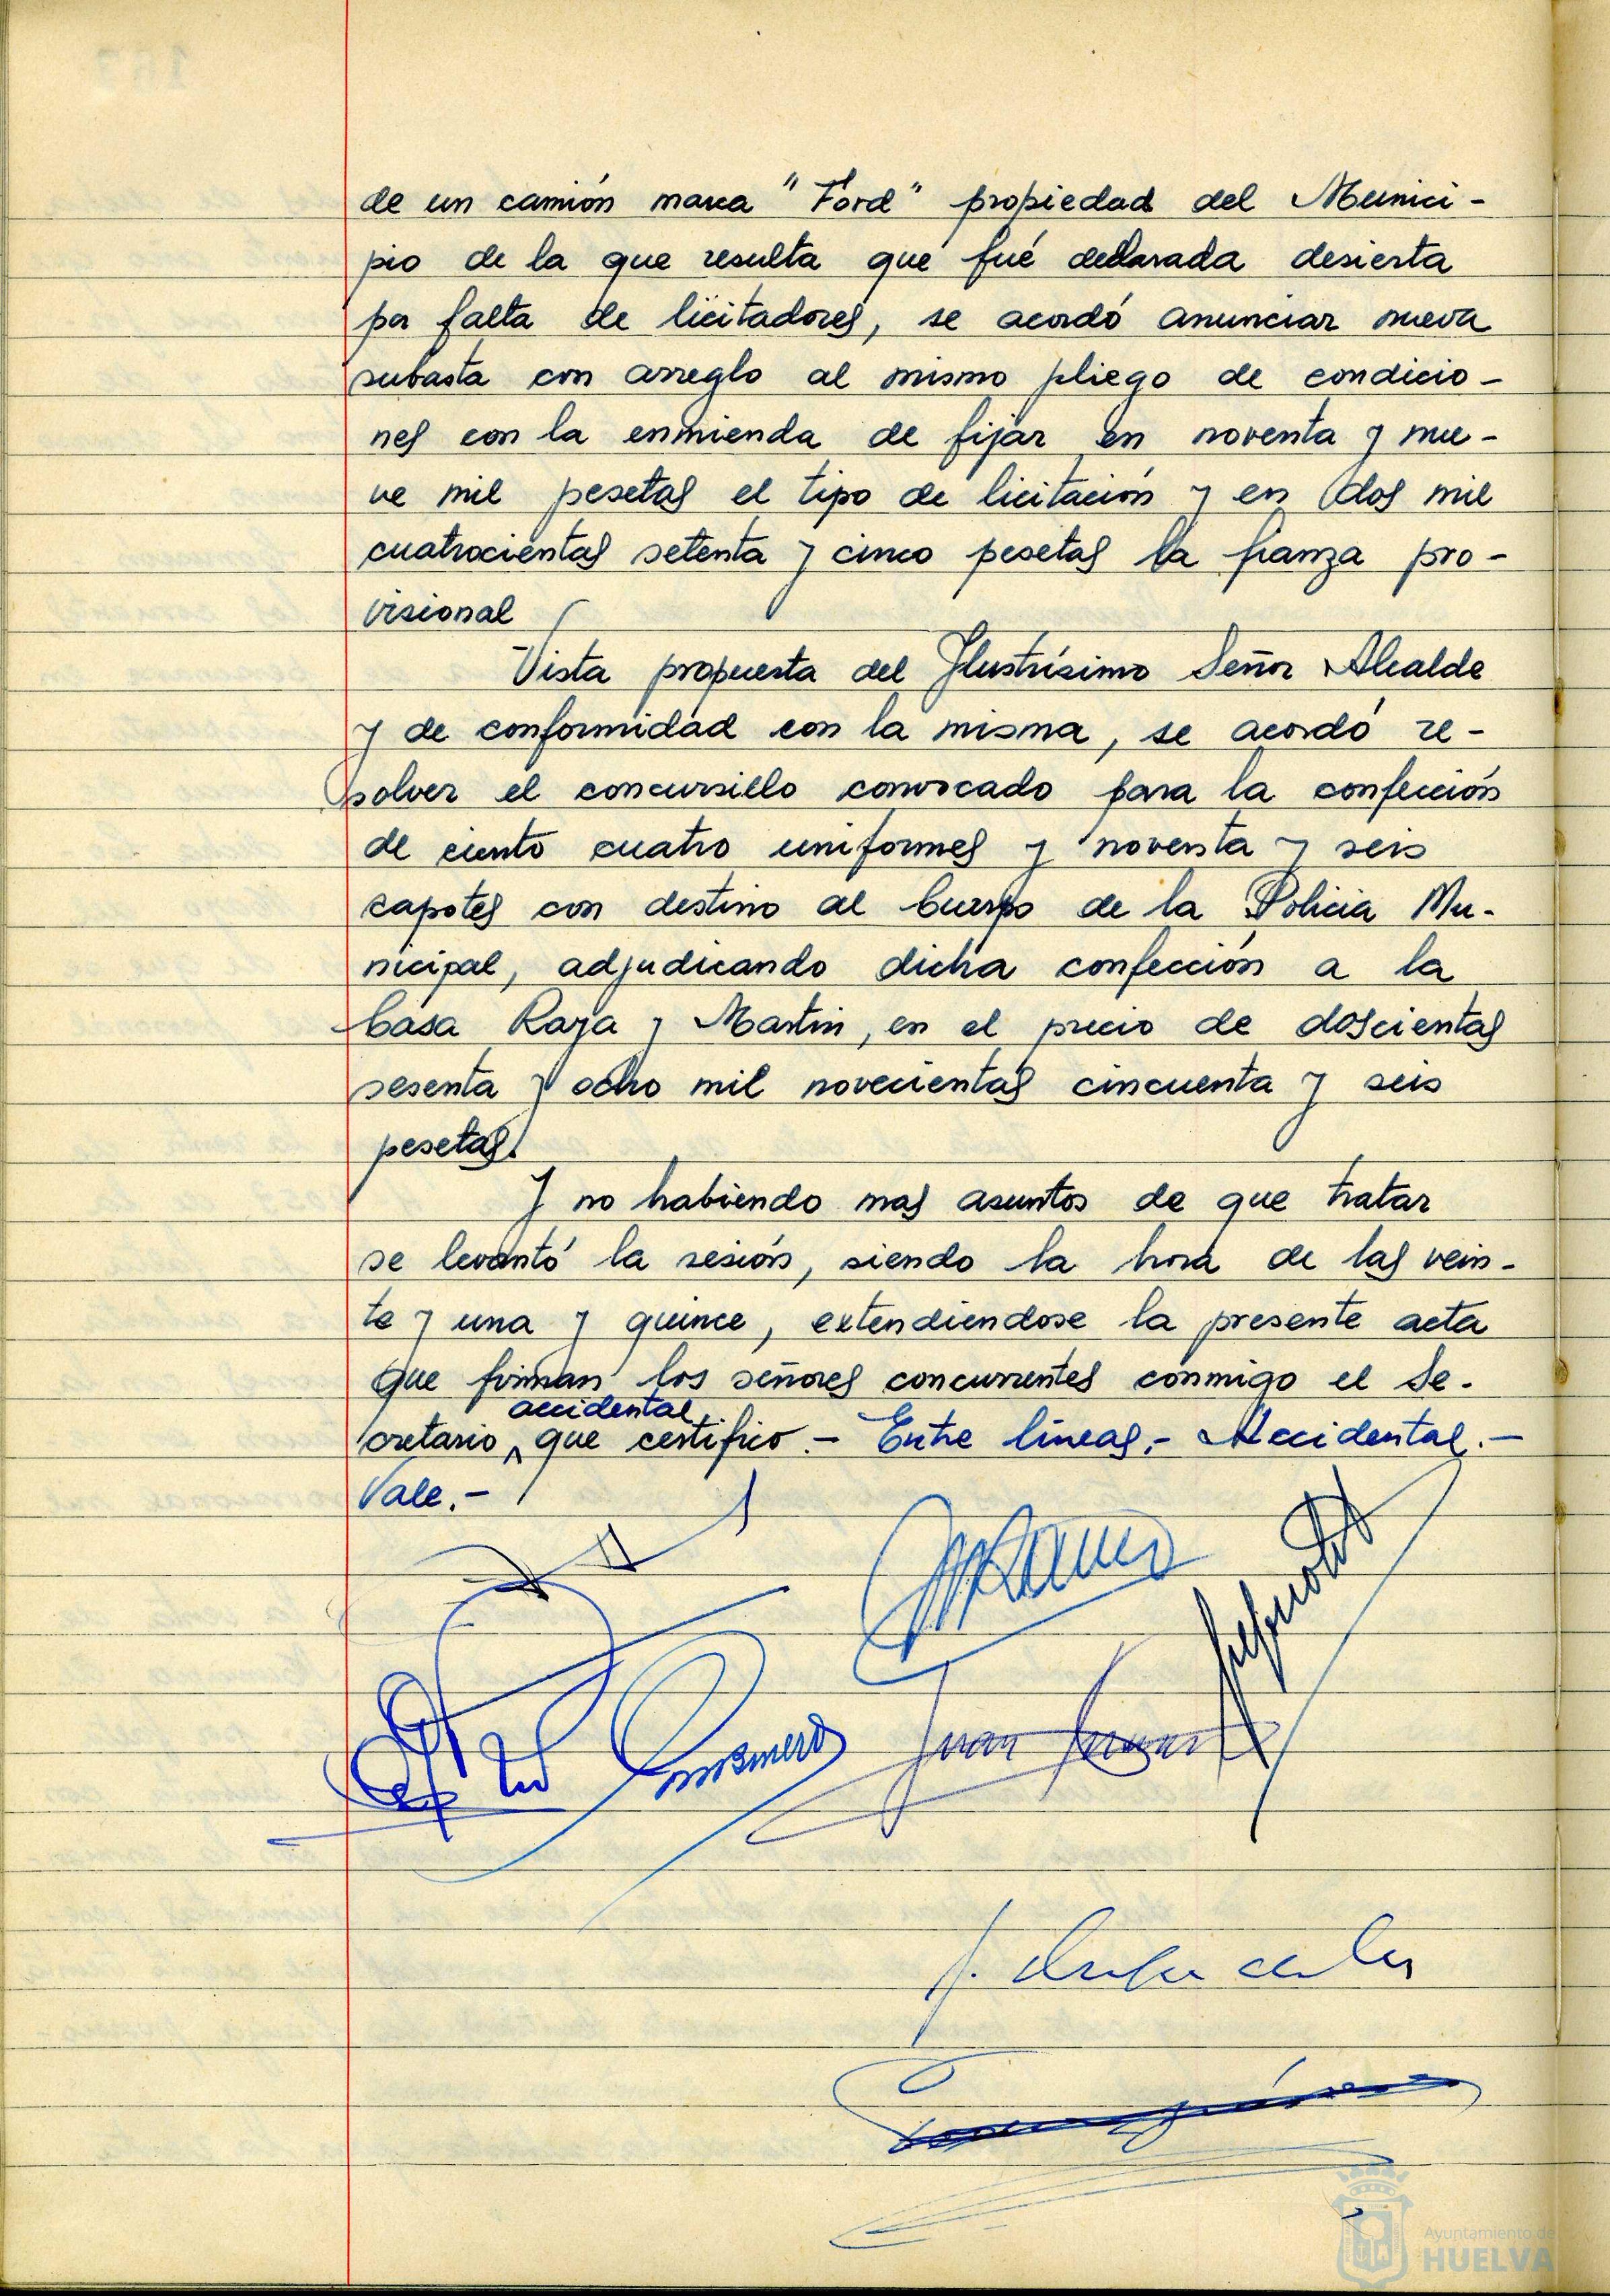 de un camión marca "Ford" propiedad del Munici-
pio de la que resulta que fué declarada desierta
por falta de licitadores, se acordó anunciar nueva
subasta con arreglo al mismo pliego de condicio-
nes con la enmienda de fijar en noventa y nue-
ve mil pesetas el tipo de licitación y en dos mil
cuatrocientas setenta y cinco pesetas la fianza pro-
visional
Vista propuesta del Ilustrísimo Señor Alcalde
y de conformidad con la misma, se acordó re-
solver el concursillo convocado para la confección
de ciento cuatro uniformes y noventa y seis
capotes con destino al Cuerpo de la Policia Mu-
nicipal, adjudicando dicha confección a la
Casa Raya y Martin, en el precio de doscientas
sesenta y ocho mil novecientas cincuenta y seis
pesetas.
Y no habiendo mas asuntos de que tratar
se levantó la sesión, siendo la hora de las vein-
te y una y quince, extendiendose la presente acta
que firman los señores concurrentes conmigo el Se-
accidental
cretario, que certifico.- Entre líneas.- Accidental.-
Vale.-
Juan
Ayuntamiento de
HUELVA